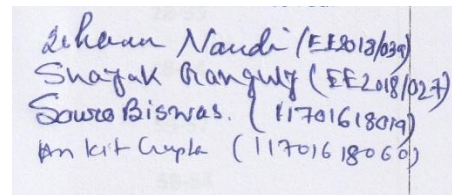 Nandi (EE2018/039)
Shayak Ganguly (EE2018/027)
Souro Biswas. (11701618019)
Ankit Gupta (11701618060)